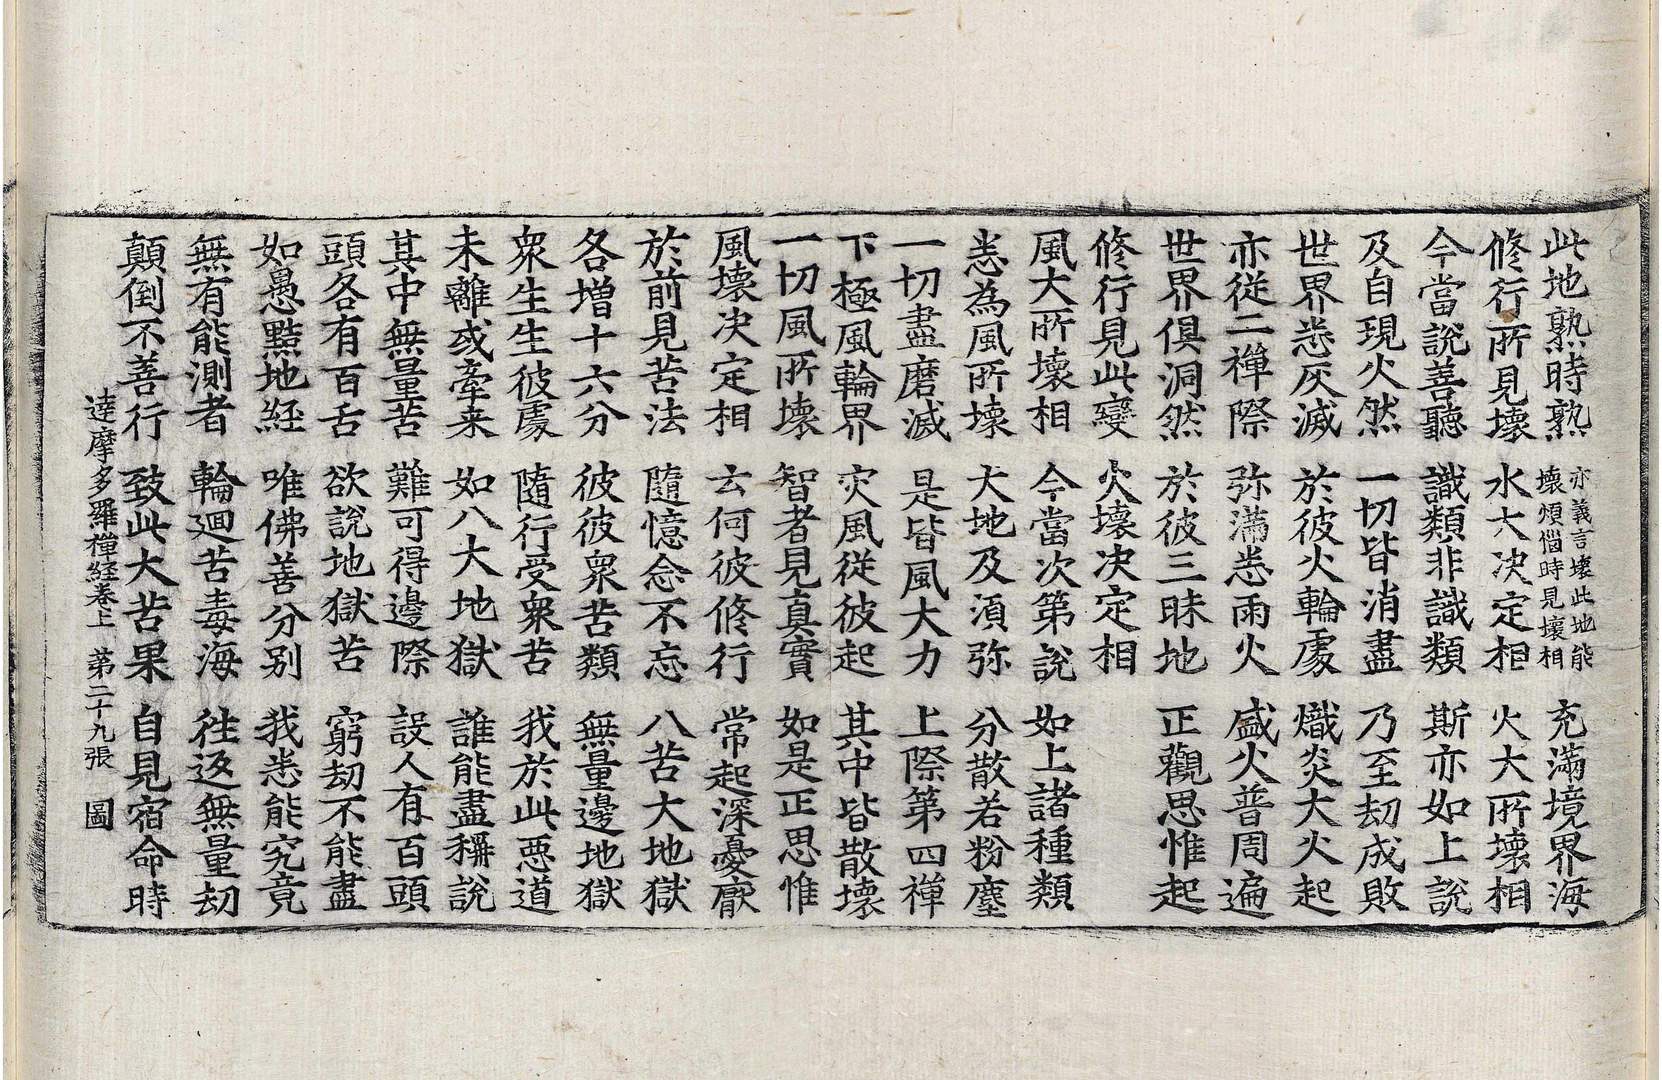 此地熟時熟 亦義言壞此地能壞煩惱時見壞相 充滿境界海
修行所見壞 水大決定相 火大所壞相
今當說善聽 識類非識類 斯亦如上說
及自現火然 一切皆消盡 乃至劫成敗
世界悉灰滅 於彼火輪處 熾炎大火起
亦従二禪際 弥滿悉雨火 盛火普周遍
世界俱洞然 於彼三昧地 正觀思惟起
修行見此變 火壞決定相
風大所壞相 今當次第說 如上諸種類
悉為風所壞 大地及湏弥 分散若粉塵
一切盡磨滅 是皆風大力 上際第四禪
下極風輪界 灾風従彼起 其中皆散壞
一切風所壞 智者見真實 如是正思惟
風壞决定相 云何彼修行 常起深憂厭
於前見苦法 隨憶念不忘 八苦大地獄
各增十六分 彼彼衆苦類 無量邊地獄
衆生生彼處 隨行受衆苦 我於此惡道
未離或牽来 如八大地獄 誰能盡稱說
其中無量苦 難可得邊際 設人有百頭
頭各有百舌 欲說地獄苦 窮劫不能盡
如愚黠地經 唯佛善分別 我悉能究竟
無有能測者 輪迴苦毒海 往返無量劫
顛倒不善行 致此大苦果 自見宿命時
達摩多羅禪経卷上 第二十九張 圖